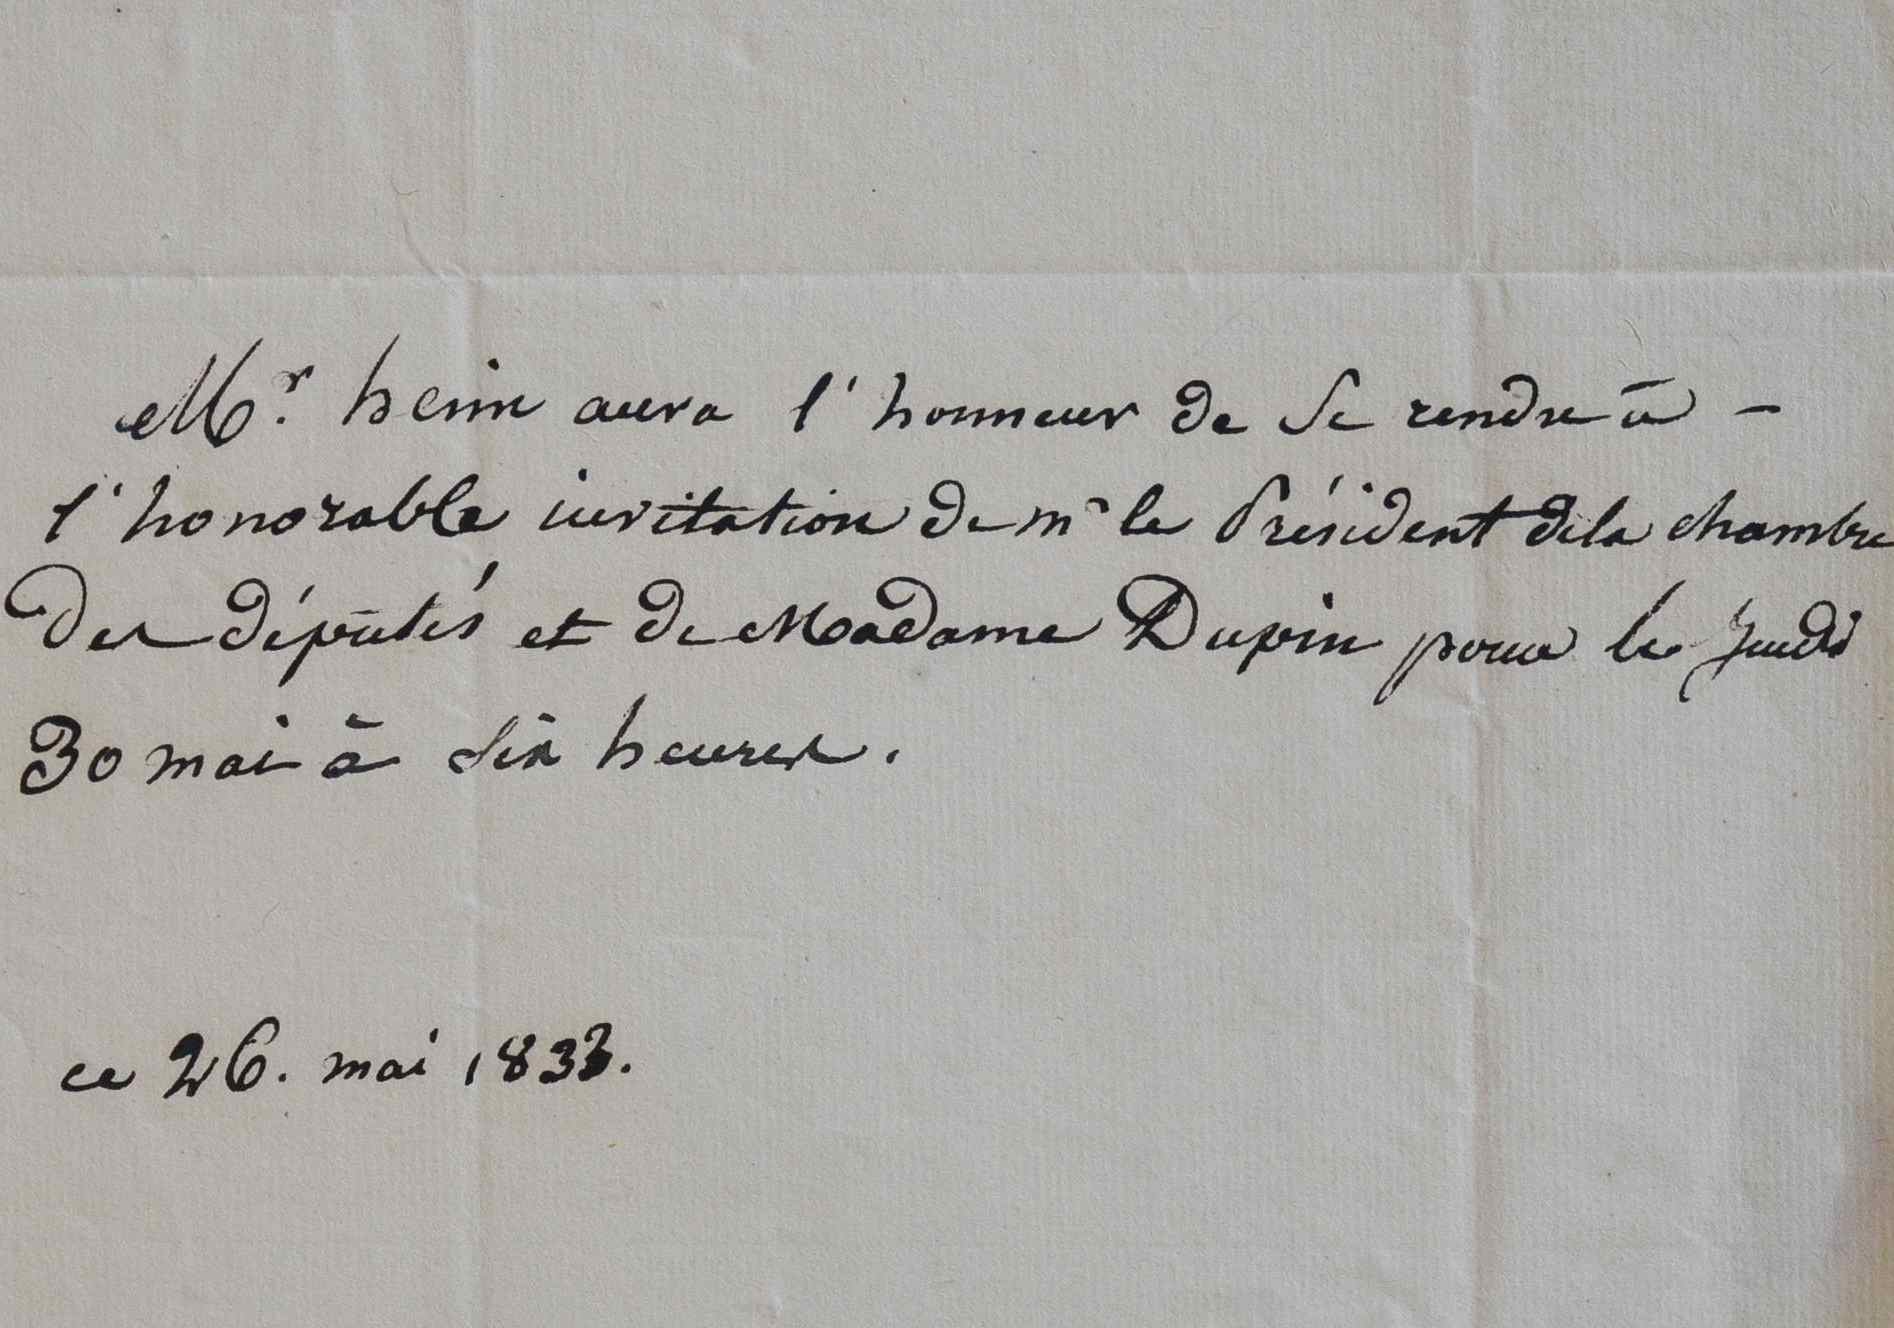 Mr. heim aura l'honneur de se rendre à -
l'honorable invitation de mr le Président de la chambre
des députés et de Madame Dupin pour le Jeudi
30 mai à six heures.
ce 26. mai 1833.